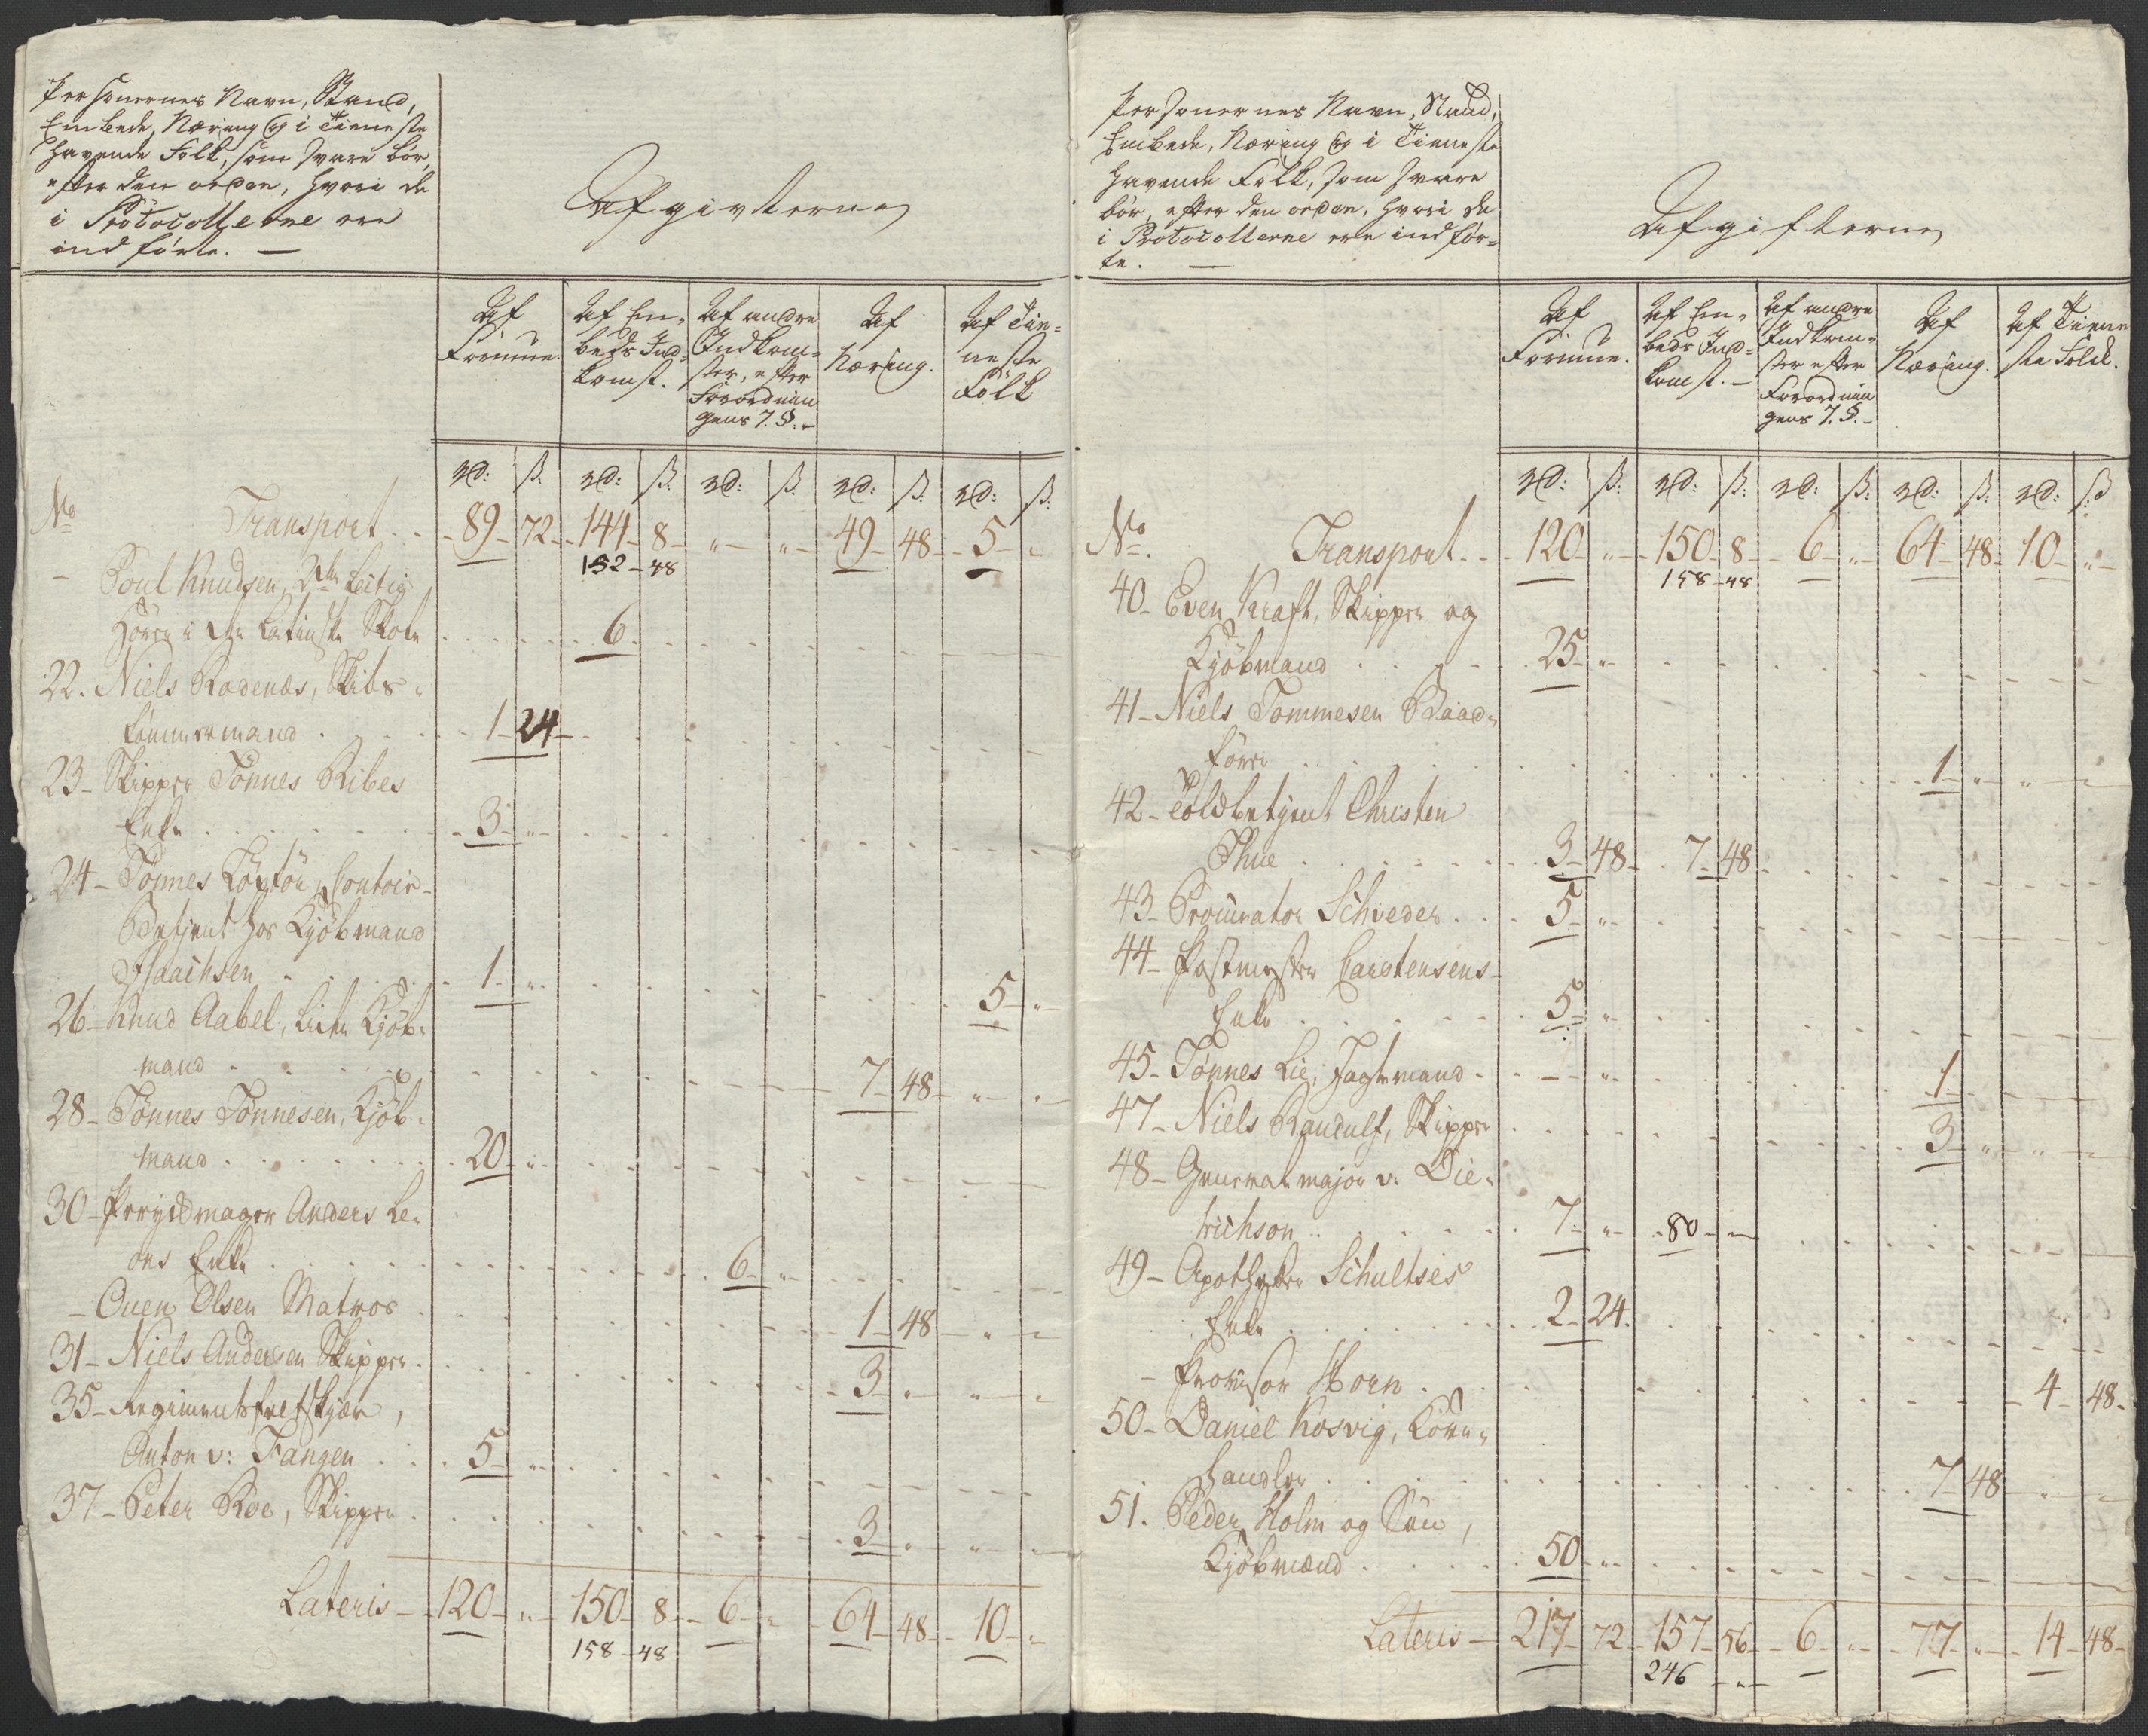 Personernes Navn, Stand,
Embede, Næring og i Tieneste
havende Folk, som svare bör,
efter den orden, hvori de
i Protocollerne ere
indförte. —
Afgivterne
Af Formue.
Af Embeds Indkomst.
Af andre Indkomster, efter Forordningens 7. §. -
Af Næring.
Af Tieneste Folk
rd: ß. rd: ß. rd: ß. rd: ß. rd: ß.
No Transport . . - 89 - 72 - 144 - 8 - " - " - 49 - 48 - 5 - "
152 - 48
- Poul Knudsen,
Hörer i den Latinske Skole . . . 6.
22. Niels Rodenæs, Skibs-
tömmermand . . 1 - 24 -
23 - Skipper Tönnes Ribes
Enke . . . . 3 - " -
24 - Tönnes Contoir-
Betjent hos Kjöbmand
Isaachsen . . . 1 - " . . . 5 - "
26 - Knud Aabel, Kjöb-
mand . . . . 7 - 48 - " - "
28 - Tönnes Tönnesen, Kjöb-
mand . . . . 20 - " -
30 - Perüqmager Anders Le-
ons Enke . . . . 6 - " -
- Ouen Olsen Matros . . . 1 - 48 - " - "
31 - Niels Andersen Skipper . . . 3 - " - " - "
35 - Regimentsfeltskjær,
Anton v: Fangen . . . 5 - " -
37 - Peter Roe, Skipper . . . 3 - " - " - "
Lateris - 120 - " - 150 - 8 - 6 - " - 64 - 48 - 10 - "
158 - 48
Personernes Navn, Stand,
Embede, Næring og i Tieneste
havende Folk, som svare
bör, efter den orden, hvori de
i Protocollerne ere indför-
te. —
Afgifterne
Af Formue.
Af Embeds Indkomst. -
Af andre Indkomster efter Forordningens 7. §. -
Af Næring.
Af Tieneste Folk.
rd: ß: rd: ß: rd: ß: rd: ß: rd: ß
No. Transport . . - 120 - " - 150 - 8 - 6 - " - 64 - 48 - 10 - "
158 - 48
40 - Even Kraft, Skipper og
Kjöbmand . . . 25 - " -
41 - Niels Tommesen Baad-
förer . . . . 1 - " - " -
42 - Toldbetjent Christen
Thue . . . . 3 - 48 - 7 - 48 -
43 - Procurator Schveder . . . 5 - " -
44 - Postmester Carstensens
Enke . . . . 5 - " -
45 - Tönnes Lie, Jagtemand . - - " . . 1 -
47 - Niels Randulf, Skipper . . . 3 - " - " -
48 - Generalmajor v: Die-
trichson . . . . 7 - " - 80 - -
49 - Apotheker Schultses
Enke . . . . 2 - 24.
- Provisor Horn . . . . 4 - 48 -
50 - Daniel Kosvig, Korn-
handler . . . . 7 - 48 - " -
51. Peder Holm og Sön,
Kjöbmænd . . . . 50 - " -
Lateris - 217 - 72 - 157 - 56 - 6 - " - 77 - " - 14 - 48 -
246 - " -